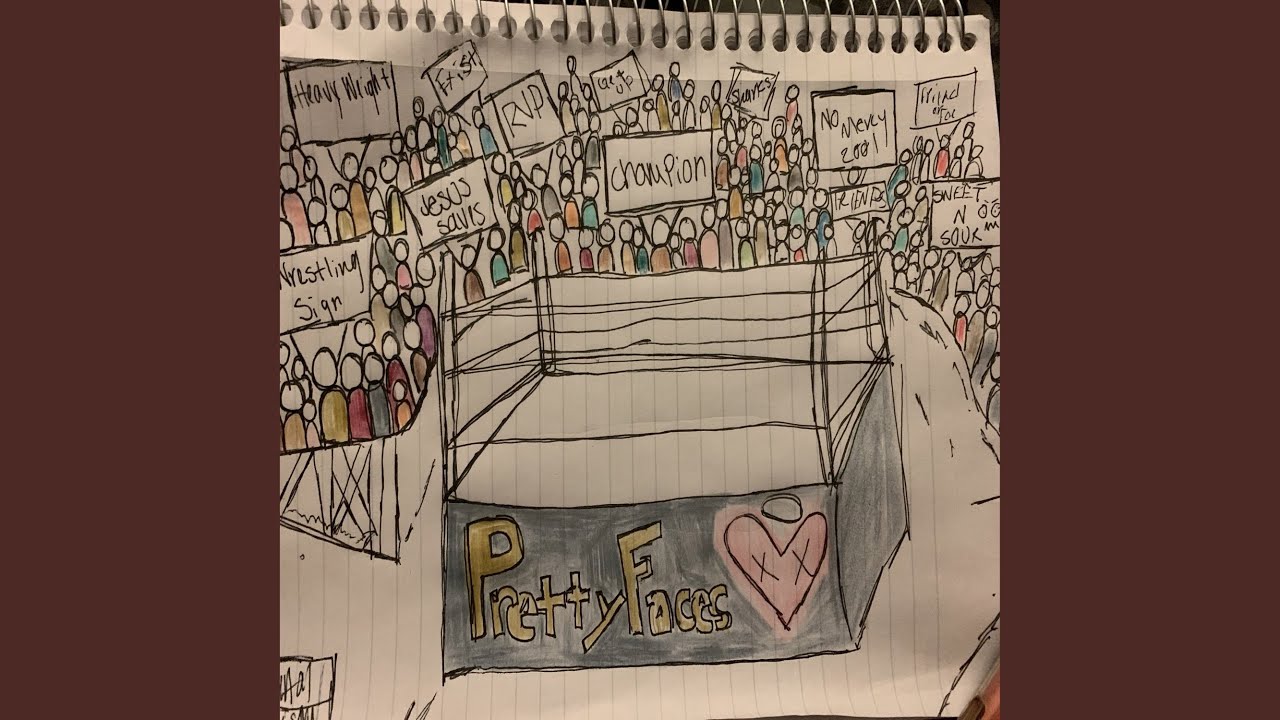 Heavy Weight
RVP
Get up
Sharks
No
Mercy
2001!
Friend
or Foe
champion
Jesus
saves
FRIENDS
SWEET
N
SOUR
Wrestling
Sign
Pretty Faces
X X